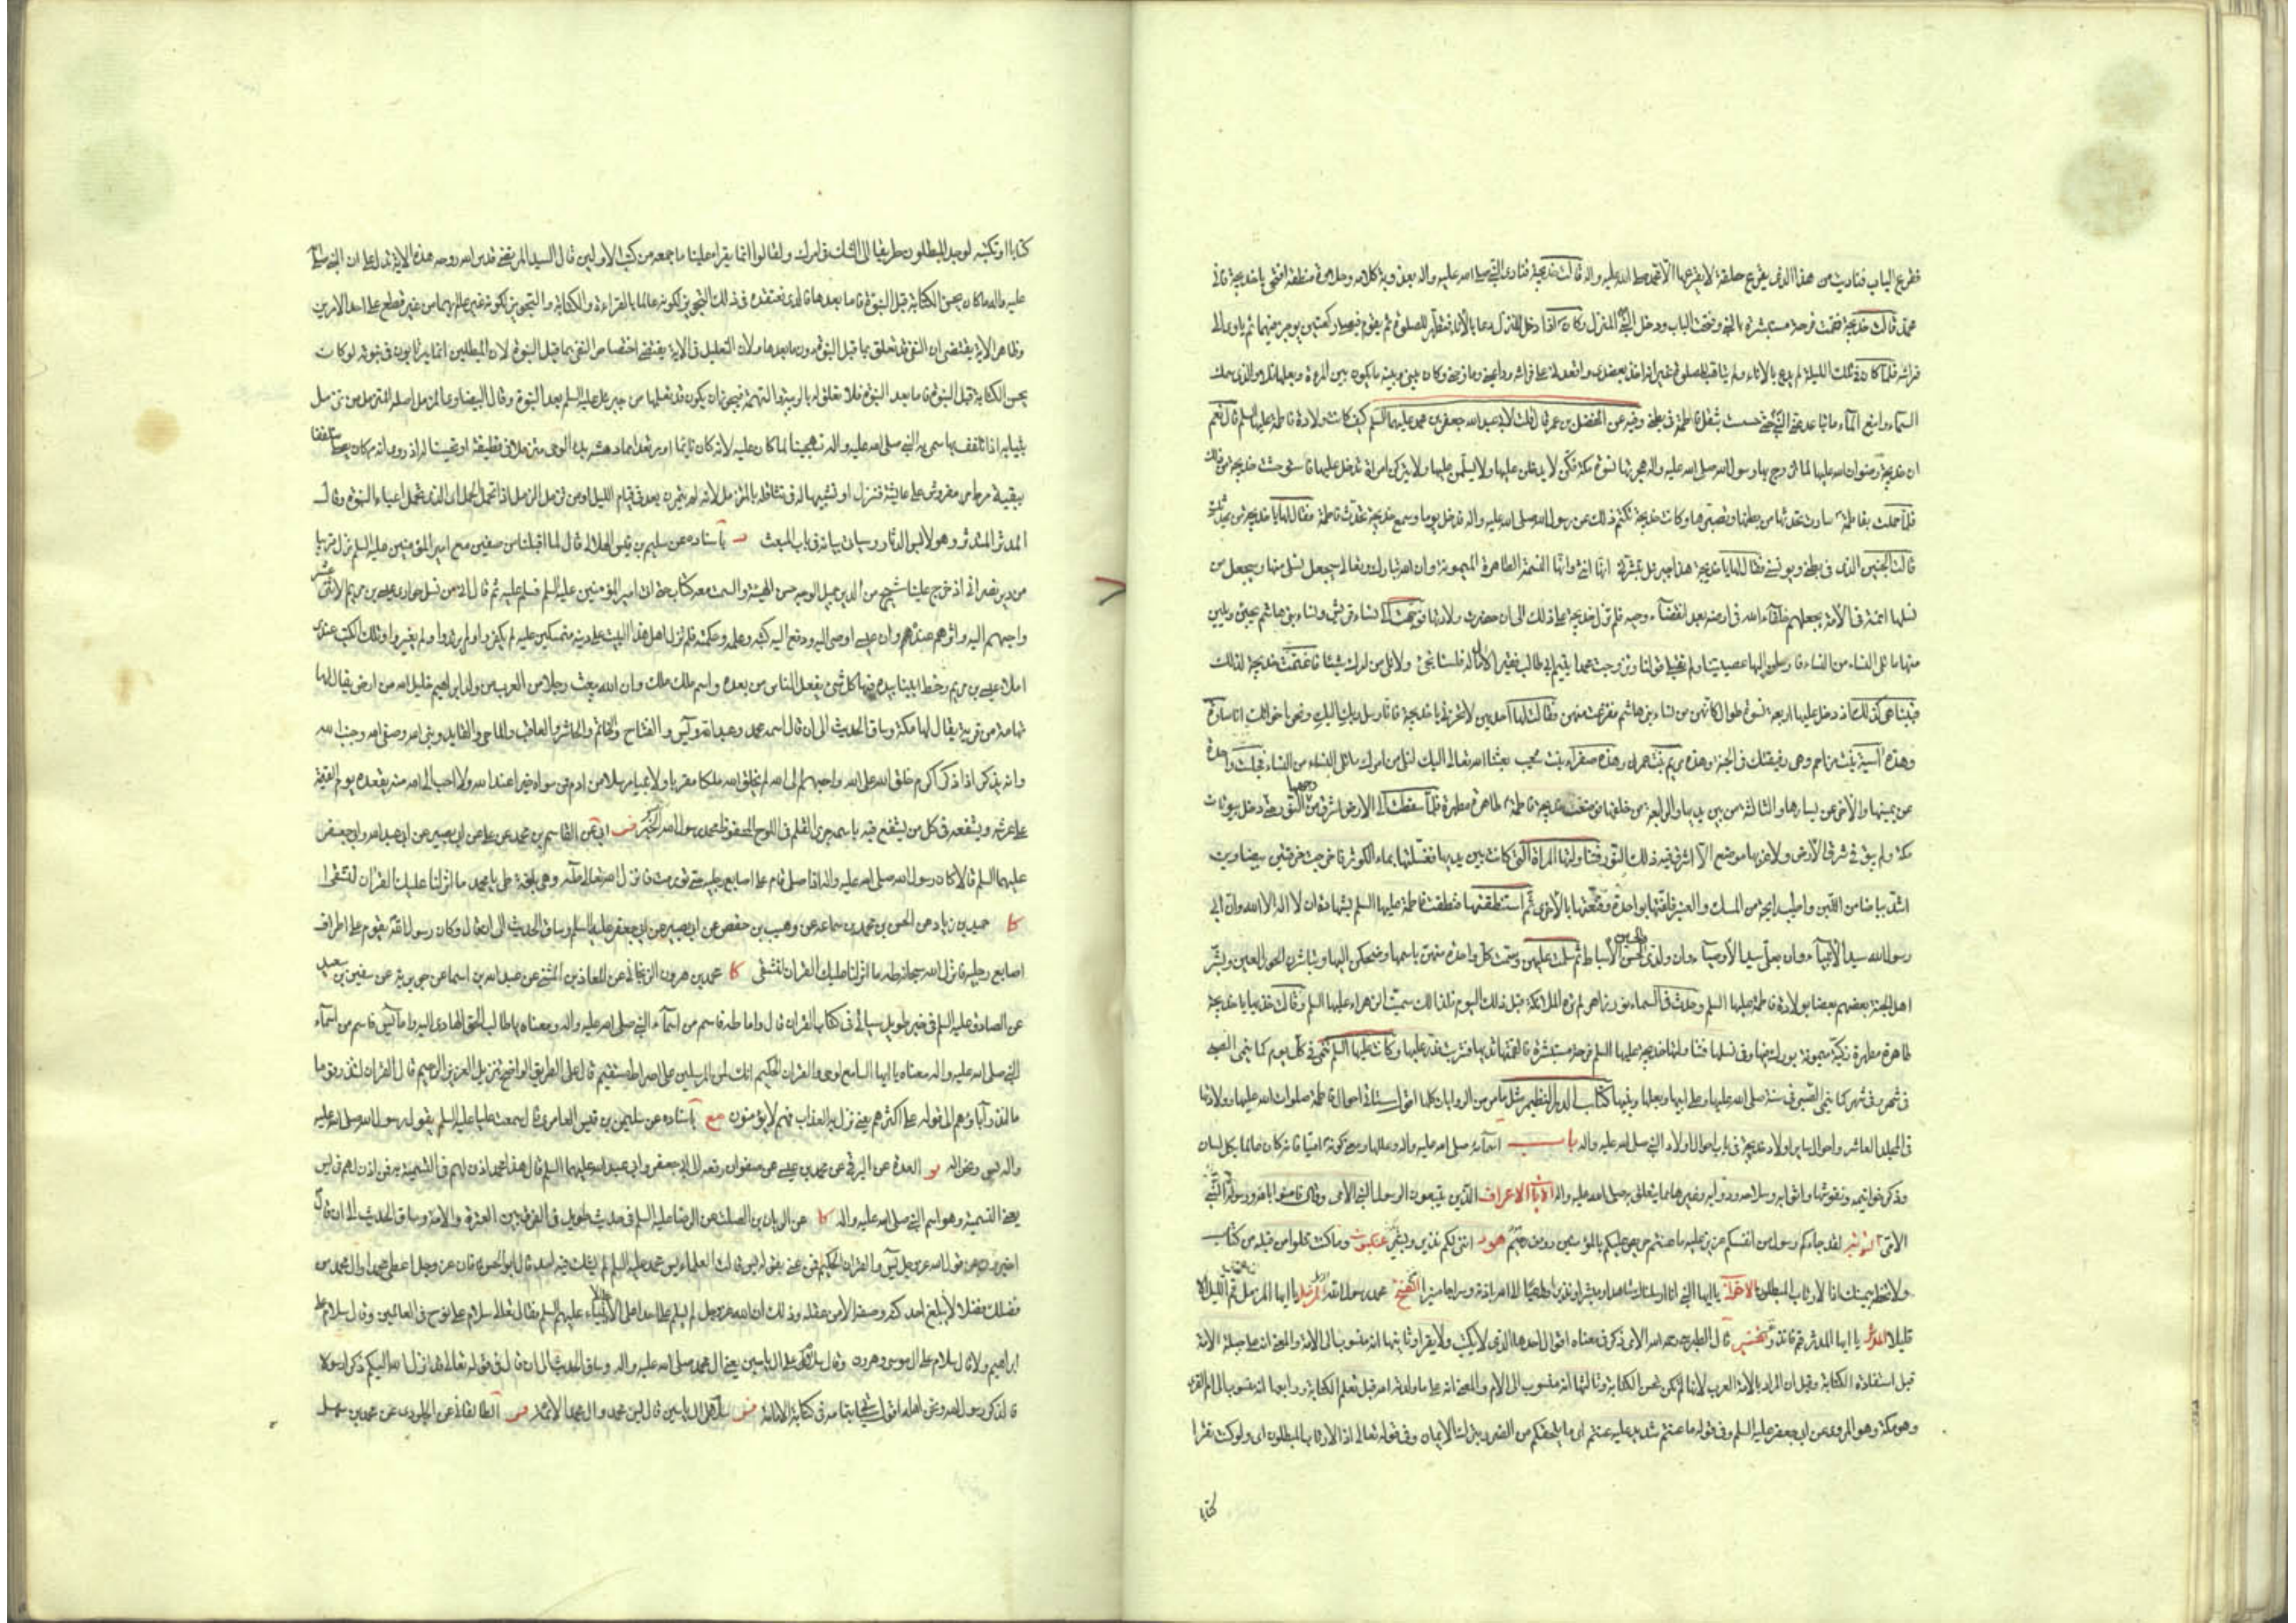 فقرع الباب فناديت من هذا الذي يقرع حلقة لا يقرعها الا محمد صلى الله عليه واله قالت خديجة فنادى النبي صلى الله عليه واله بعذوبة كلامه وحلاوة منطقه افتحي يا خديجة فاني
محمد قالت خديجة فقمت فرحة مستبشرة بالنبي وفتحت الباب ودخل النبي المنزل وكان اذا دخل المنزل دعا بالاناء فتطهر للصلوة ثم يقوم فيصلي ركعتين يوجز فيهما ثم ياوى الى
فراشه فلما كان في تلك الليلة لم يدع بالاناء ولم يتاهب للصلوة غير انه اخذ بعضدي واقعدني على فراشه وداعبني ومازحني وكان بيني وبينه ما يكون بين المرءة وبعلها فلا والذي سمك
السماء وانبع الماء ما تباعد عني النبي حتى حسست بثقل فاطمة في بطني وفيه عن المفضل بن عمر قال قلت لابي عبد الله جعفر بن محمد عليهما السلم كيف كانت ولادة فاطمة عليها السلم قال نعم
ان خديجة رضوان الله عليها لما تزوج بها رسول الله صلى الله عليه واله هجرتها نسوة مكة فكن لا يدخلن عليها ولا يسلمن عليها ولا يتركن امراة تدخل عليها فاستوحشت خديجة من ذلك
فلما حملت بفاطمة صارت تحدثها من بطنها وتصبرها وكانت خديجة تكتم ذلك عن رسول الله صلى الله عليه واله فدخل يوما وسمع خديجة تحدث فاطمة فقال لها يا خديجة من يحدثك
قالت الجنين الذي في بطني يحدثني ويونسني فقال لها يا خديجة هذا جبرئيل يبشرني انها انثى وانها النسمة الطاهرة الميمونة وان الله تبارك وتعالى سيجعل نسلي منها وسيجعل من
نسلها ائمة في الامة يجعلهم خلفاء الله في ارضه بعد انقضاء وحيه فلم تزل خديجة على ذلك الى ان حضرت ولادتها فوجهت الى نساء قريش ونساء بني هاشم يجئن ويلين
منها ما تلي النساء من النساء فارسلن اليها عصيتينا ولم تقبلي قولنا وتزوجت محمدا يتيم ابي طالب فقيرا لا مال له فلسنا نجئ ولا نلي من امرك شيئا فاغتمت خديجة لذلك
فبينا هي كذلك اذ دخل عليها اربعة نسوة طوال كانهن من نساء بني هاشم ففزعت منهن فقالت لها احديهن لا تحزني يا خديجة فانا رسل ربك اليك ونحن اخواتك انا سارة
وهذه اسية بنت مزاحم وهي رفيقتك في الجنة وهذه مريم بنت عمران وهذه صفراء بنت شعيب بعثنا الله تعالى اليك لنلي من امرك ما تلي النساء من النساء فجلست واحدة
عن يمينها والاخرى عن يسارها والثالثة من بين يديها والرابعة من خلفها فوضعت خديجة فاطمة طاهرة مطهرة فلما سقطت الى الارض اشرق منها النور حتى دخل بيوتات
مكة ولم يبق في شرق الارض ولا غربها موضع الا اشرق فيه ذلك النور فتناولتها المراة التي كانت بين يديها فغسلتها بماء الكوثر فاخرجت خرقتين بيضاوين
اشد بياضا من اللبن واطيب رايحة من المسك والعنبر فلفتها بواحدة وقنعتها بالاخرى ثم استنطقتها فنطقت فاطمة عليها السلم بشهادة ان لا اله الا الله وان ابي
رسول الله سيد الانبياء وان بعلي سيد الاوصياء وان ولدي سيد الاسباط ثم سلمت عليهن وسمت كل واحدة منهن باسمها وضحكن اليها وتباشرن الحور العين وبشر
اهل الجنة بعضهم بعضا بولادة فاطمة عليها السلم وحدث في السماء نور زاهر لم تره الملائكة قبل ذلك اليوم فلذلك سميت الزهراء عليها السلم وقالت خذيها يا خديجة
طاهرة مطهرة زكية ميمونة بورك فيها وفي نسلها فتناولتها خديجة عليها السلم فرحة مستبشرة فالقمتها ثديها فشربت فدر عليها وكانت عليها السلم تنمى في كل يوم كما ينمى الصبي
في شهر وفي شهر كما ينمى الصبي في سنة صلى الله عليها وعلى ابيها وبعلها وبنيها كتاب الدر النظيم مثل ما مر من الروايات كلها اقول سياتي احوال فاطمة صلوات الله عليها وولادتها
في المجلد العاشر واحوال ساير اولاد خديجة في باب احوال اولاد النبي صلى الله عليه واله باب اسمائه صلى الله عليه واله وعللها ومعنى كونه اميا وانه كان عالما بكل لسان
وذكر خواتيمه ونقوشها واثوابه وسلاحه ودوابه وغيرها مما يتعلق به صلى الله عليه واله الايات الاعراف الذين يتبعون الرسول النبي الامي وقال فامنوا بالله ورسوله النبي
الامي التوبة لقد جاءكم رسول من انفسكم عزيز عليه ما عنتم حريص عليكم بالمؤمنين رؤف رحيم هود انني لكم منه نذير وبشير عنكبوت وما كنت تتلوا من قبله من كتاب
ولا تخطه بيمينك اذا لارتاب المبطلون الاحزاب يا ايها النبي انا ارسلناك شاهدا ومبشرا ونذيرا وداعيا الى الله باذنه وسراجا منيرا الفتح محمد رسول الله المزمل يا ايها المزمل قم الليل الا
قليلا المدثر يا ايها المدثر قم فانذر تفسير قال الطبرسي رحمه الله الامي ذكر في معناه اقوال احدها الذي لا يكتب ولا يقرا وثانيها انه منسوب الى الامة والمعنى انه على جبلة الامة
قبل استفادة الكتابة وقيل ان المراد بالامة العرب لانها لم تكن تحسن الكتابة وثالثها انه منسوب الى الام والمعنى انه على ما ولدته امه قبل تعلم الكتابة ورابعها انه منسوب الى ام القرى
وهو مكة وهو المروي عن ابي جعفر عليه السلم وفي قوله ما عنتم شديد عليه عنتكم اي ما يلحقكم من الضرر بترك الايمان وفي قوله تعالى اذا لارتاب المبطلون اي ولو كنت تقرا
كتابا
كتابا او تكتبه لوجد المبطلون طريقا الى الشك في امرك ولقالوا انما يقراء علينا ما جمعه من كتب الاولين قال السيد المرتضى قدس الله روحه هذه الاية تدل على ان النبي صلى الله
عليه واله ما كان يحسن الكتابة قبل النبوة فاما بعدها فالذي نعتقده في ذلك التجويز لكونه عالما بالقراءة والكتابة والتجويز لكونه غير عالم بهما من غير قطع على احد الامرين
وظاهر الاية يقتضي ان النفي قد تعلق بما قبل النبوة دون ما بعدها ولان التعليل في الاية يقتضي اختصاص النفي بما قبل النبوة لان المبطلين انما يرتابون في نبوته لو كان
يحسن الكتابة قبل النبوة فاما بعد النبوة فلا تعلق له بالريبة والتهمة فيجوز ان يكون قد تعلمها من جبرئيل عليه السلم بعد النبوة وقال البيضاوي المزمل اصله المتزمل من تزمل
بثيابه اذا تلفف بها سمي به النبي صلى الله عليه واله تهجينا لما كان عليه لانه كان نائما او مرتعدا مما دهشه بدء الوحي متزملا في قطيفة او تحسينا له اذ روي انه كان يصلي متلففا
ببقية مرط مفروش على عايشة فنزل او تشبيها له في تثاقله بالمتزمل لانه لم يتمرن بعد في قيام الليل او من تزمل الزمل اذا تحمل الحمل اي الذي تحمل اعباء النبوة وقال
المدثر المتدثر وهو لابس الدثار وسياتي بيانه في باب المبعث باسناده عن سليم بن قيس الهلالي قال لما اقبلنا من صفين مع امير المؤمنين عليه السلم نزل قريبا
من دير نصراني اذ خرج علينا شيخ من الدير جميل الوجه حسن الهيئة والسمت معه كتاب حتى اتى امير المؤمنين عليه السلم فسلم عليه ثم قال اني من نسل حواري عيسى بن مريم الاثنى عشر
واحبهم اليه واثرهم عنده وان عيسى اوصى اليه ودفع اليه كتبه وعلمه وحكمته فلم تزل اهل هذا البيت على دينه متمسكين عليه لم يكفروا ولم يرتدوا ولم يغيروا وتلك الكتب عندي
املاء عيسى بن مريم وخط ابينا بيده فيها كل شيء يفعل الناس من بعده واسم ملك ملك وان الله يبعث رجلا من العرب من ولد ابراهيم خليل الله من ارض يقال لها
تهامة من قرية يقال لها مكة وساق الحديث الى ان قال اسمه محمد وعبد الله ويس والفتاح والخاتم والحاشر والعاقب والماحي والقايد ونبي الله وصفي الله وجنب الله
وانه يذكر اذا ذكر اكرم خلق الله على الله واحبهم الى الله لم يخلق الله ملكا مقربا ولا نبيا مرسلا من ادم فمن سواه خيرا عند الله ولا احب الى الله منه يقعده يوم القيمة
على عرشه ويشفعه في كل من يشفع فيه باسمه جرى القلم في اللوح المحفوظ محمد رسول الله الخبر فس ابي عن القاسم بن محمد عن علي عن ابي بصير عن ابي عبد الله وابي جعفر
عليهما السلم قالا كان رسول الله صلى الله عليه واله اذا صلى قام على اصابع رجليه حتى تورمت فانزل الله تعالى طه وهي بلغة طي يا محمد ما انزلنا عليك القران لتشقى
كا حميد بن زياد عن الحسن بن محمد بن سماعة عن وهيب بن حفص عن ابي بصير عن ابي جعفر عليه السلم وساق الحديث الى ان قال وكان رسول الله يقوم على اطراف
اصابع رجليه فانزل الله سبحانه طه ما انزلنا عليك القران لتشقى محمد بن هرون الزنجاني عن المعاذ بن المثنى عن عبد الله بن اسما عن جويرية عن سفين بن سعيد
عن الصادق عليه السلم في خبر طويل سياتي في كتاب القران قال واما طه فاسم من اسماء النبي صلى الله عليه واله ومعناه يا طالب الحق الهادي اليه واما يس فاسم من اسماء
النبي صلى الله عليه واله معناه يا ايها السامع لوحي والقران الحكيم انك لمن المرسلين على صراط مستقيم قال على الطريق الواضح تنزيل العزيز الرحيم قال القران لتنذر قوما ما
ما انذر اباؤهم الى قوله على اكثرهم يعني نزل به العذاب فهم لا يؤمنون باسناده عن سليم بن قيس العامري قال سمعت عليا عليه السلم يقول رسول الله صلى الله عليه
واله يس ونحن اله العدة عن البرقي عن محمد بن عيسى عن صفوان رفعه الى ابي جعفر وابي عبد الله عليهما السلم قال هذا محمد اذن لهم في التسمية به فمن اذن لهم في يس
يعني التسمية وهو اسم النبي صلى الله عليه واله عن الريان بن الصلت عن الرضا عليه السلم في حديث طويل في الفرق بين العترة والامة وساق الحديث الى ان قال
اخبروني عن قول الله عز وجل يس والقران الحكيم فمن عنى بقوله يس قالت العلماء يس محمد عليه السلم لم يشك فيه احد قال ابو الحسن فان الله عز وجل اعطى محمدا وال محمد من
فضلك فضلا لا يبلغ احد كنه وصفه الا من عقله وذلك ان الله عز وجل لم يسلم على احد الا على الانبياء عليهم السلم فقال تعالى سلام على نوح في العالمين وقال سلام على
ابراهيم وقال سلام على موسى وهرون وقال سلام على ال ياسين يعني ال محمد صلى الله عليه واله وساق الحديث الى ان قال في قوله تعالى قد انزل الله اليكم ذكرا رسولا
قال الذكر رسول الله ونحن اهله اقول سياتي بتمامه في كتاب الامامة فس سلام على ال ياسين قال يس محمد وال محمد الائمة الطالقاني عن الجلودي عن محمد بن سهل